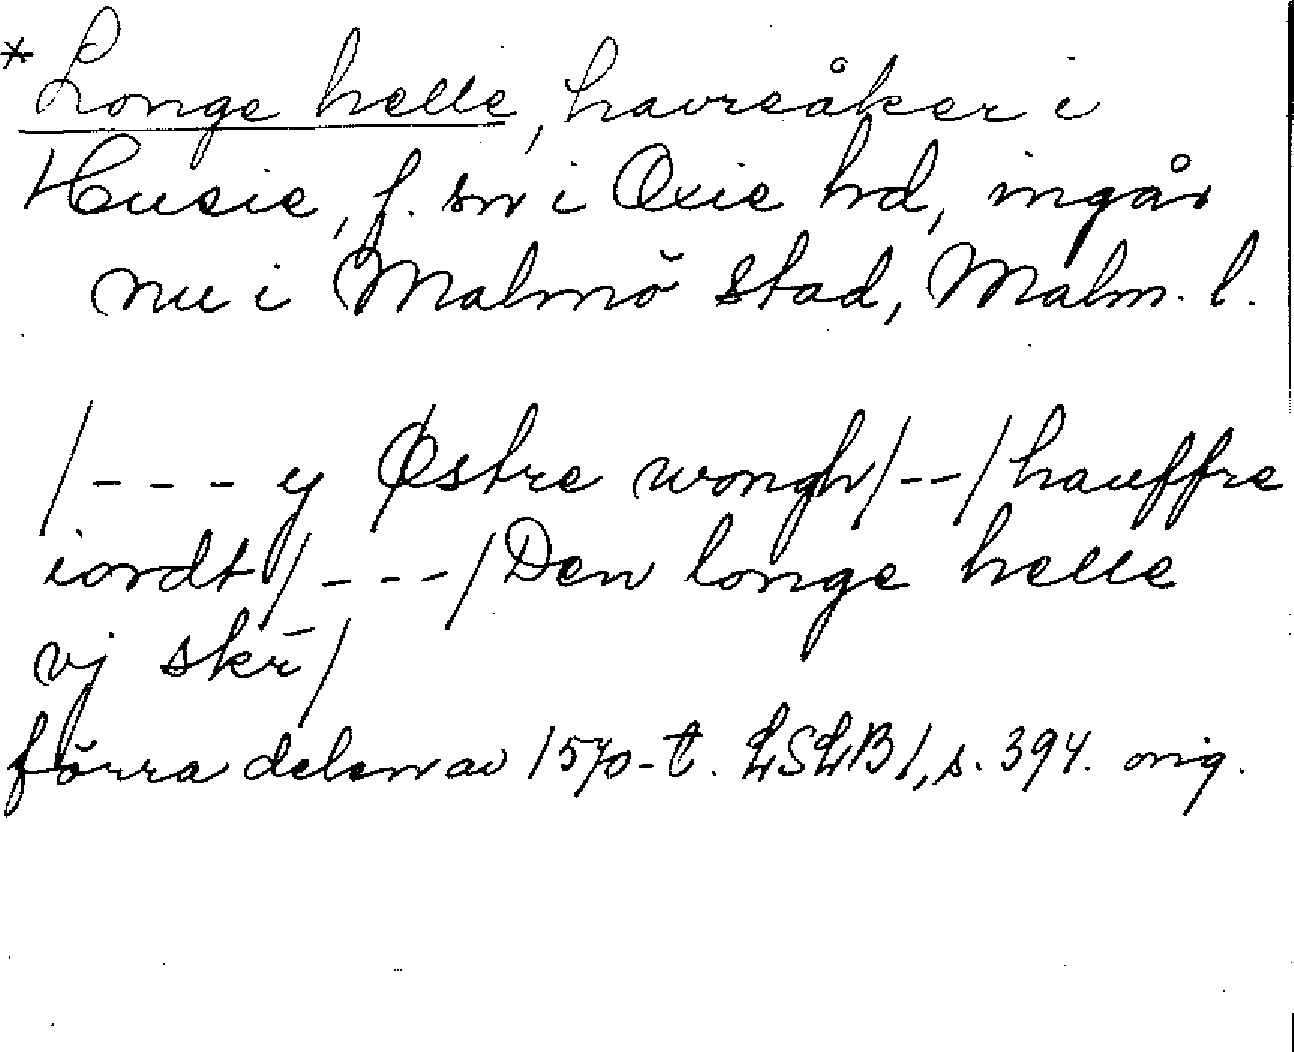 *Longe helle, havreåker i
Husie, f. sn i Oxie hd, ingår
nu i Malmö stad, Malm. l.
/--- y Østre wongh/--/hauffre
iordt/---/Den longe helle
vj skr̄/
förra delen av 1570-t. LSLB1, s. 394. orig.